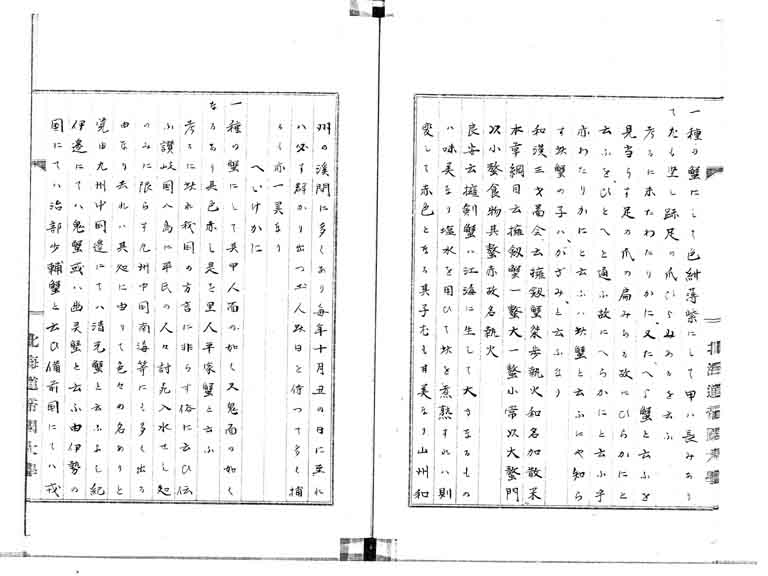 一種の蟹にして色紺薄紫にして甲ハ長みあり
てたち
考るに
見当らす足の爪の扁みある故にひらかにと
云ふをひとへと通ふ故にへらかにと云ふ乎
亦わたりかにと云ふハ此蟹と云ふにや知ら
す此蟹の子ハ、がざみ、と云ふなり
和漢三才圖会云擁劔蟹桀歩執火和名加散米
本草綱目云擁劔蟹一螯大一螯小常以大螯鬥
以小螯食物其螯赤故名執火
良安云擁劔蟹ハ江海に生して大なるもの
ハ味美なり塩水を用ひて此を煮熟すれハ則
変して赤色となる其子も美なり山州和
州の溪間に多くあり毎年十月丑の日に至に
ハ必す群かり出つ土人此日を待つて多く捕
るも亦一異なり
へいけかに
一種の蟹にして其甲人面の如く又鬼面の如く
なるあり其色赤し是を里人平家蟹と云ふ
考るに此れ我国の方言に非らす俗に云ひ伝
ふ讃岐国八島に平氏の人々討死入水せし処
のみに限らす九州中国南海等にも多く出る
由なり去れハ其処に由りて色々の名ありと
覚由九州中国辺にてハ清光蟹と云ふよし紀
伊辺にてハ鬼蟹或ハ幽灵蟹と云ふ由伊勢の
国にてハ治部少輔蟹と云ひ備前国にてハ戎
北海道帝国大學